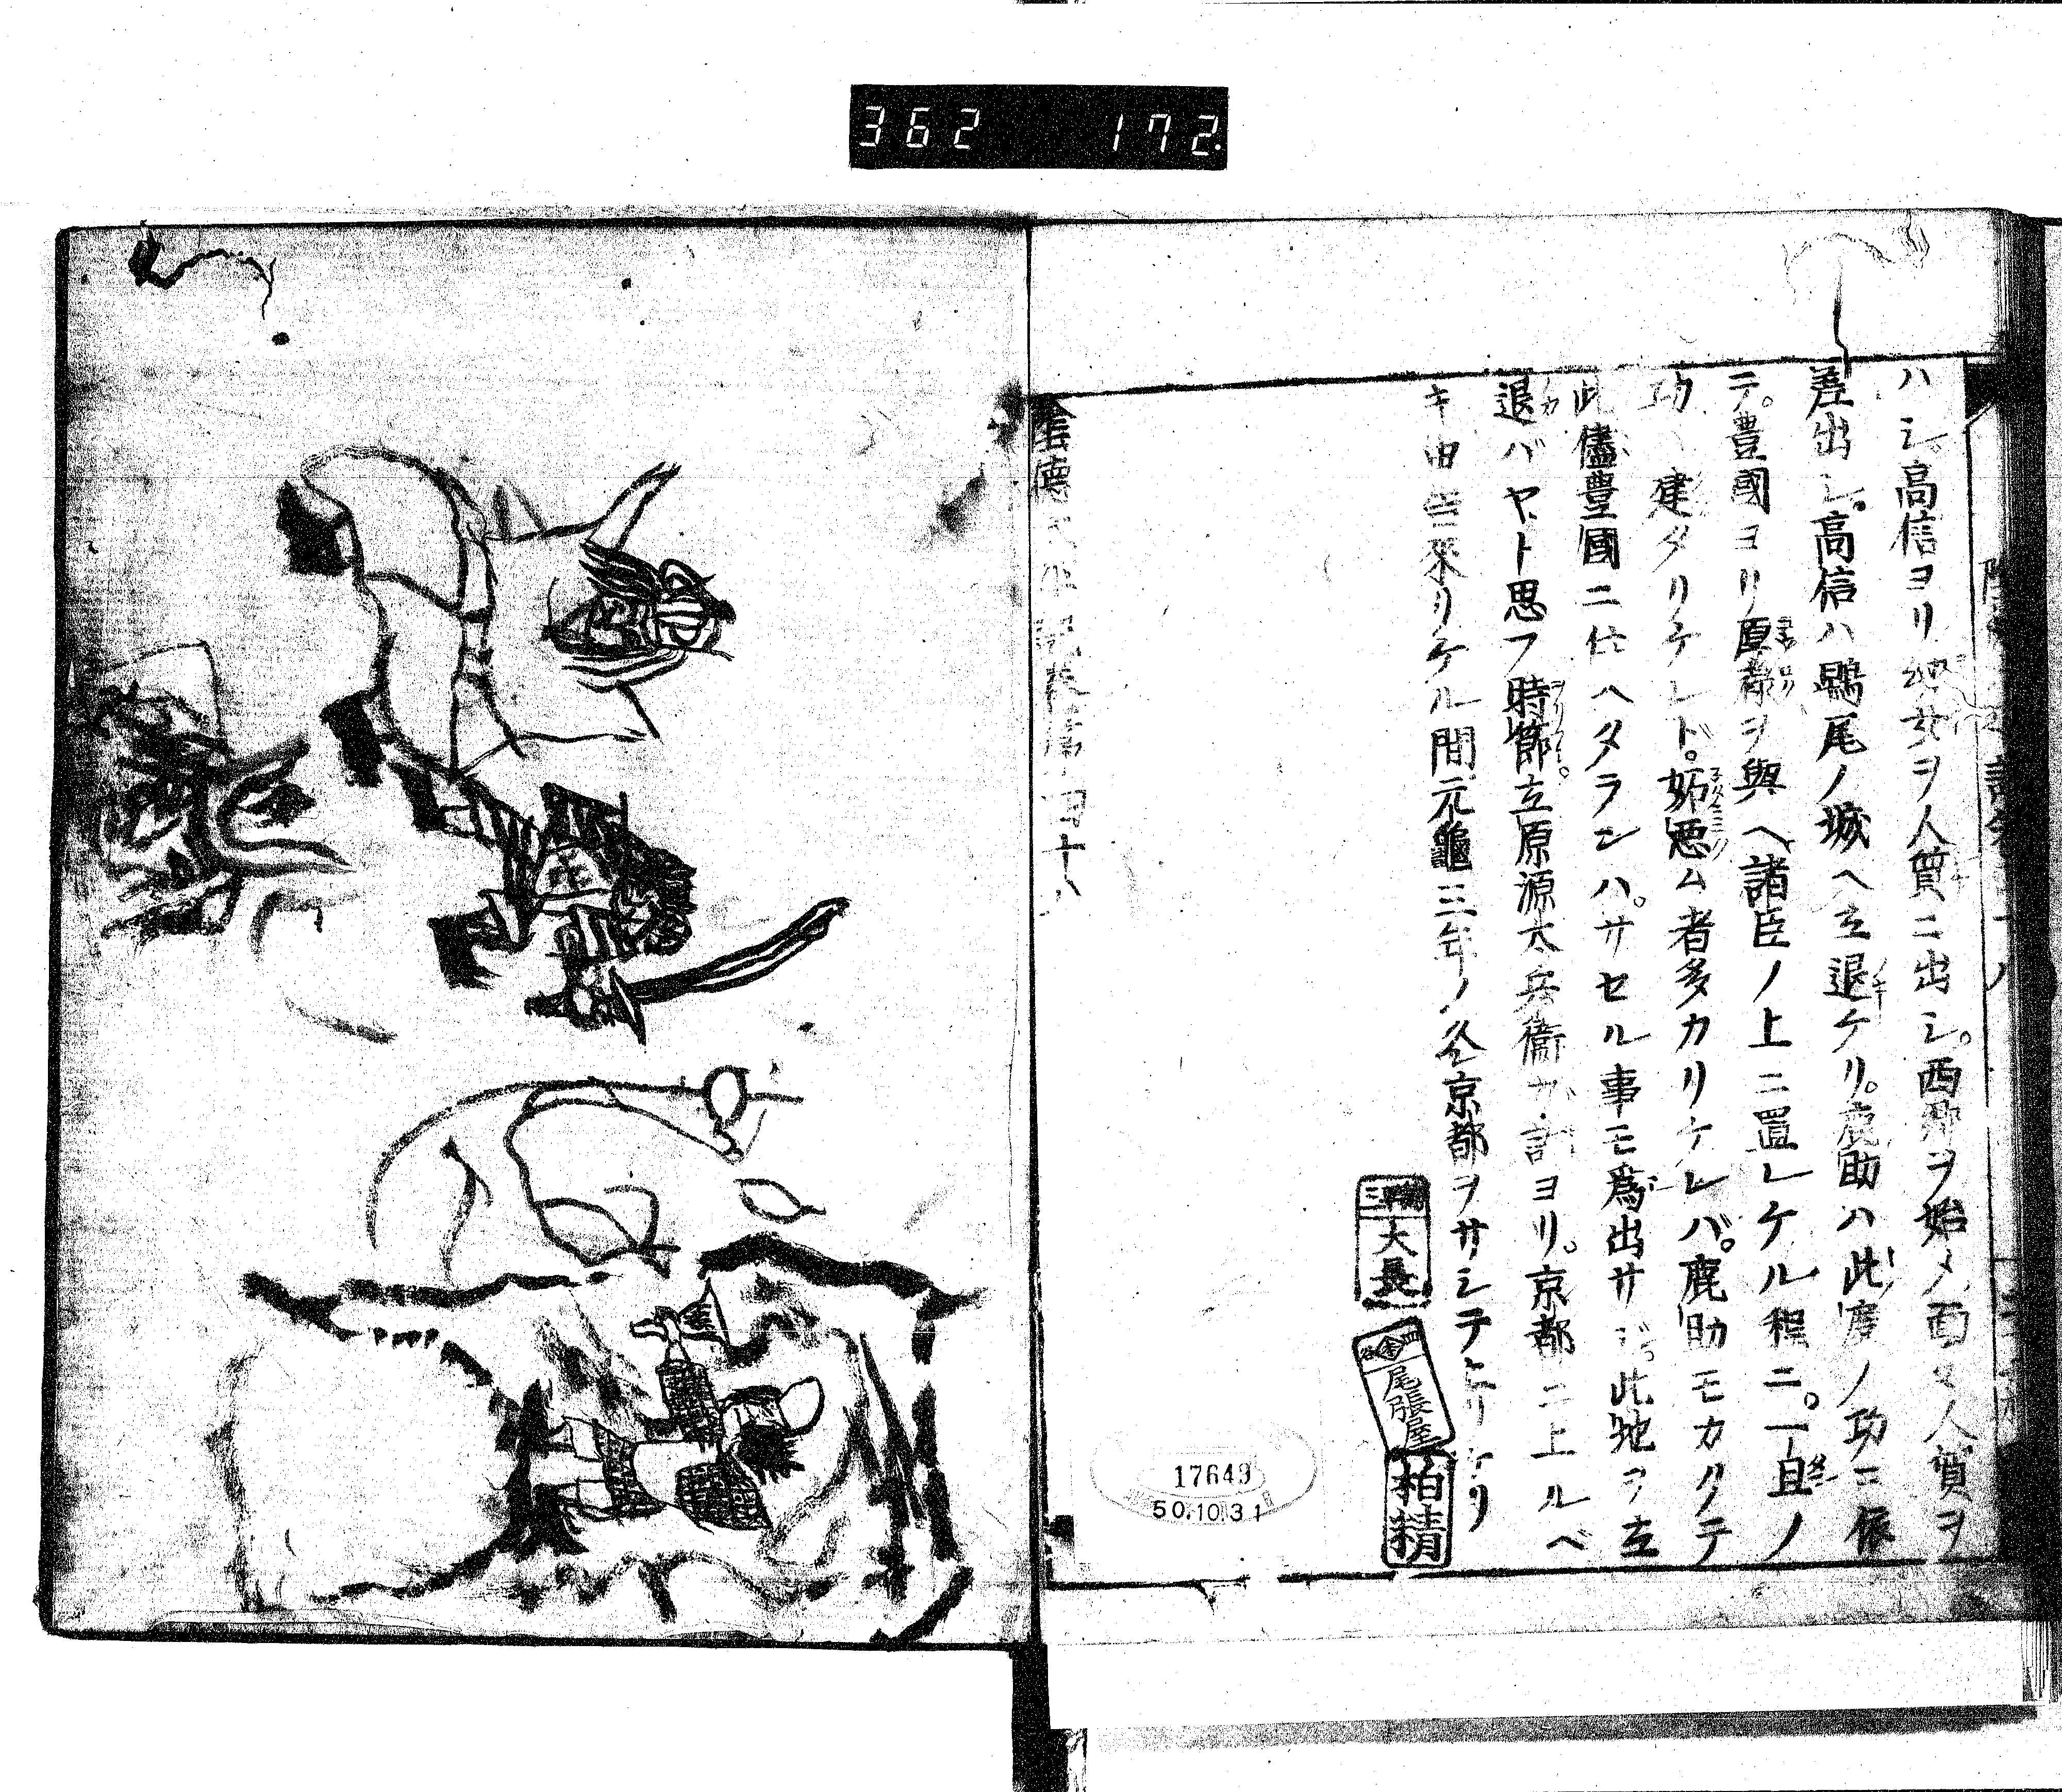 362 172.
ハシ。高信ヨリ 女ヲ人質ニ出シ。西郷ヲ始メ面々人質ヲ
差出シ。高信ハ鵯尾ノ城ヘ立退ケリ。鹿助ハ此度ノ功ニ依
テ。豊國ヨリ原禄ヲ與ヘ諸臣ノ上ニ置レケル程ニ。一旦ノ
功ハ建タリケレド。妬悪ム者多カリケレバ。鹿助モカクテ
此儘豊國ニ仕ヘタランハ。サセル事モ爲出サジ。此地ヲ立
退バヤト思フ時節立原源太兵衞ガ計ヨリ。京都ニ上ルベ
キ由 來リケル間元龜三年ノ 京都ヲサシテ上リケリ
陰徳太平記巻第四十八
大長
尾張屋
柏精
17649
50.10.31